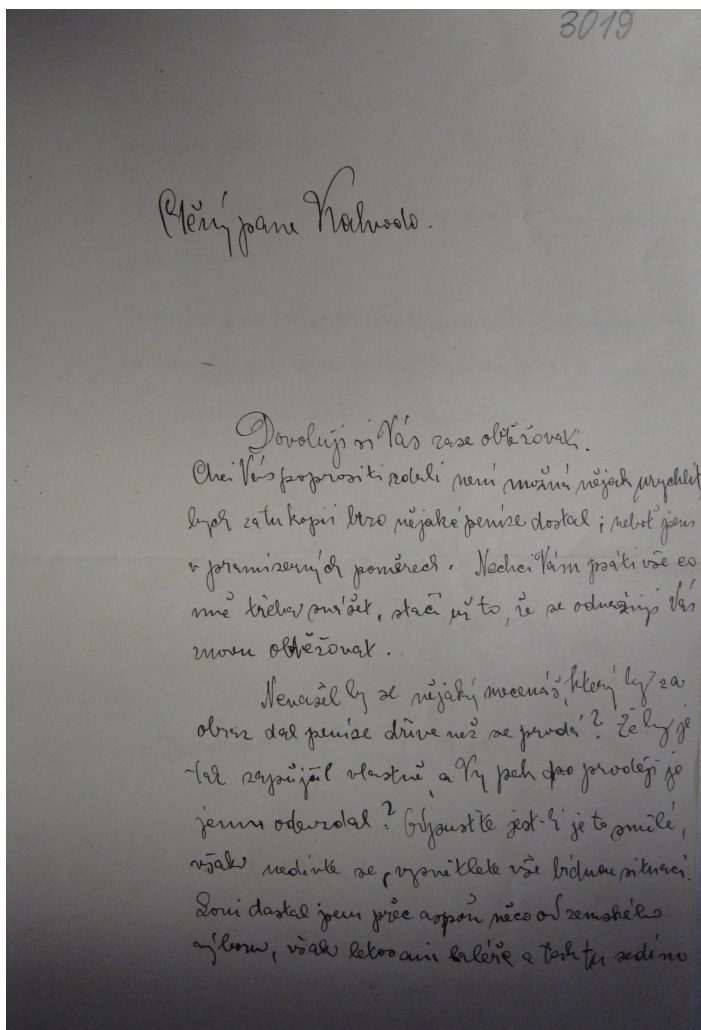 3019
Ctěný pane Kalvodo.
Dovoluji si Vás zase obtěžovati.
Chci Vás poprositi zdali není možná nějak urychlit
bych za tu kopii brzo nějaké peníze dostal; neboť jsem
v pramizerných poměrech. Nechci Vám psáti vše co
mně třeba snášet, stačí už to, že se odvažuji Vás
znovu obtěžovat.
Nenašel by se nějaký mecenáš, který by za
obraz dal peníze dříve než se prodá? Že by je
tak zapůjčil vlastně, a Vy pak po prodeji je
jemu odevzdal? Odpusťte jest-li je to smělé,
však nedivte se, vysvětlete vše bídnou situací.
Loni dostal jsem přec aspoň něco od zemského
výboru, však letos ani haléře a tak tu sedíme